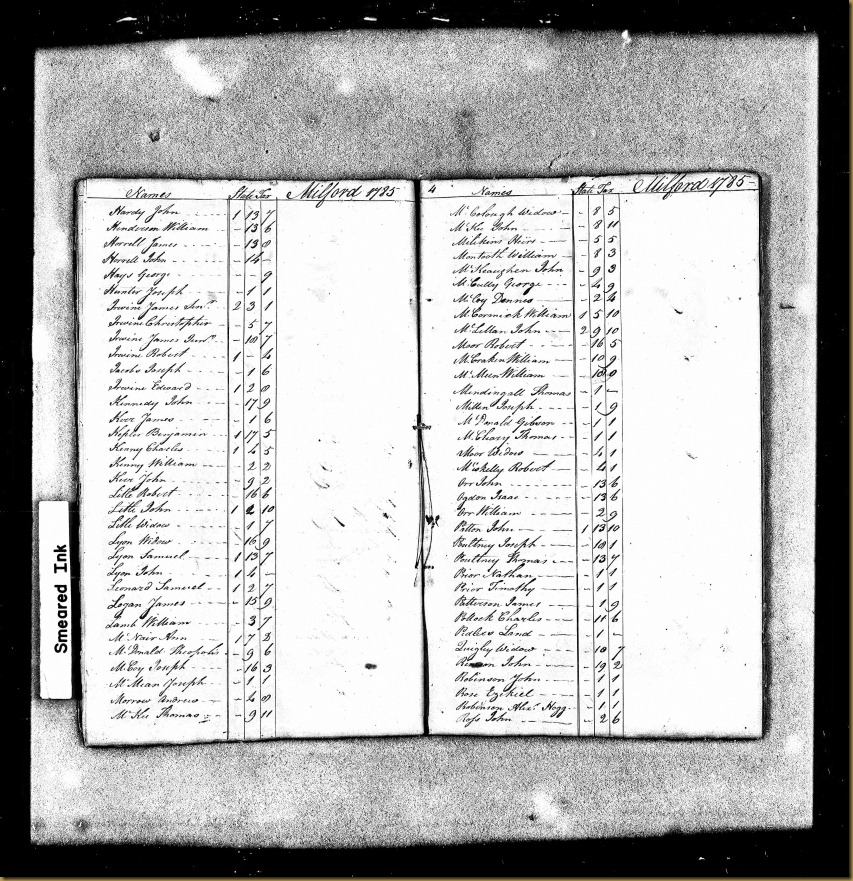 Names State Tax Milford 1785
Hardy John - - - - 1 13 7
Henderson William - 13 6
Horrell James - - - - 13 8
Horrell John - - - - 14 -
Hays George - - - - - - 9
Hunter Joseph - - - 1 1
Irwine James Senr. 2 3 1
Irwine Christopher - - 5 7
Irwine James Junr. - - 10 7
Irwine Robert - - - 1 - 4
Jacobs Joseph - - - - 1 6
Irwine Edward - - - 1 2 8
Kennedy John - - - - 17 9
Kerr James - - - - - 1 6
Kepler Benjamin - - - 1 17 5
Kenny Charles - - - 1 4 5
Kenny William - - - - 2 2
Kerr John - - - - - 9 2
Litle Robert - - - - 16 6
Litle John - - - - 1 2 10
Litle Widow - - - - 1 7
Lyon Widow - - - - 16 9
Lyon Samuel - - - - 1 13 7
Lyon John - - - - 1 4 -
Leonard Samuel - - - 1 2 7
Logan James - - - - 15 9
Lamb William - - - - 3 7
McNair Ann - - - 1 7 2
McDonald - - 9 6
McCoy Joseph - - - - 16 3
McMean Joseph - - - - 1 1
Morrow Andrew - - - - 4 8
McKee Thomas - - 9 11
4 Names State Tax Milford 1785
McColough Widow - - 8 5
McKee John - - - - 8 11
Milikins Heirs - - - - 5 5
Montooth William - - - 8 3
McKeaughen John - 9 3
McCully George - - - - 4 9
McCoy Dennes - - - - 2 4
McCormick William 1 5 10
McLellan John - - - 2 9 10
Moor Robert - - - - 16 5
McCraken William - - 10 9
McMeen William - -
Mendingall Thomas - 1 -
Millen Joseph - - - - 1 9
McDonald Gibson - - - 1 1
McCleary Thomas - - - 1 1
Moor Widow - - - 4 1
Robert - - 4 1
Orr John - - - - 13 6
Ogdon Isaac - - - - 13 6
Orr William - - - - 2 9
Patton John - - - 1 13 10
Poultney Joseph - - - 10 1
Poultney Thomas - - - 13 7
Prior Nathan - - - - 1 1
Prior Timothy - - - - 1 1
Patterson James - - - 1 9
Pollock Charles - - - 11 6
Land - - 1 -
Quigley Widow - - - 10 7
John - - - 19 2
Robinson John - - - 1 1
Rose Ezikiel - - - 1 1
Robinson Alexr. Hogg - 1 1
Ross John - - 2 6
Smeared Ink